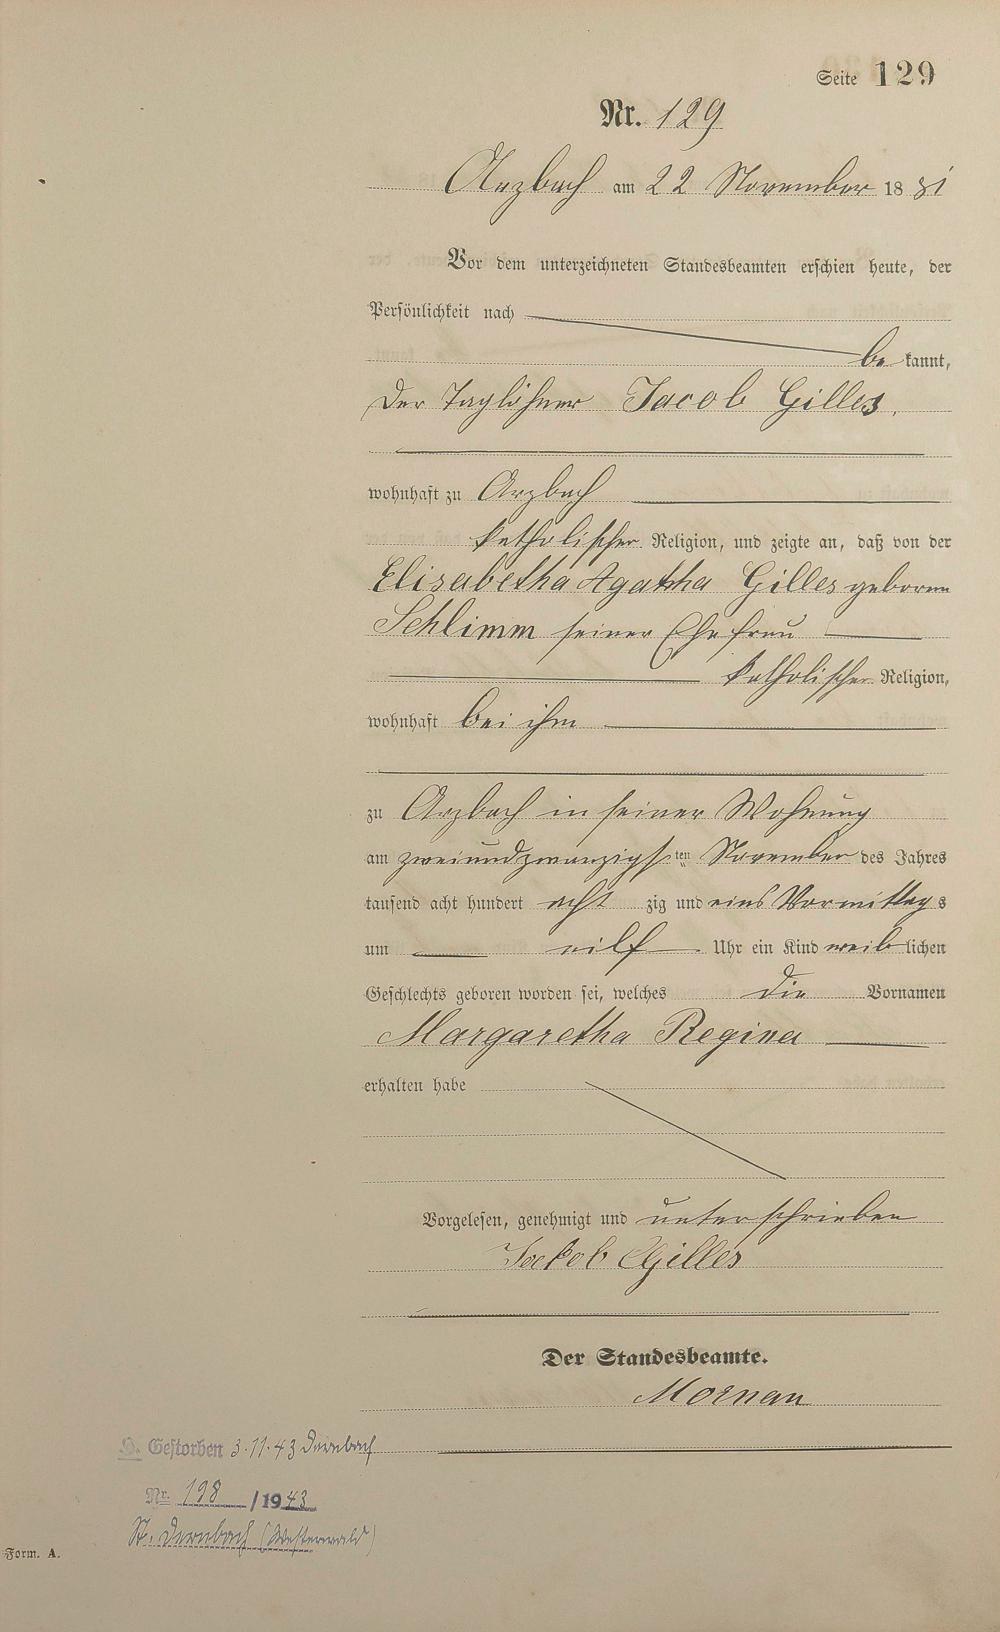 Seite 129
Nr. 129
Arzbach am 22 November 1881
Vor dem unterzeichneten Standesbeamten erschien heute, der
Persönlichkeit nach
be kannt,
der Taglöhner Jacob Gilles,
wohnhaft zu Arzbach
katholischer Religion, und zeigte an, daß von der
Elisabetha Agatha Gilles geboren
Schlimm seiner Ehefrau
katholischer Religion,
wohnhaft bei ihm
zu Arzbach in seiner Wohnung
am zweiundzwanzigsten November des Jahres
tausend acht hundert acht zig und eins Vormittags
um eilf Uhr ein Kind weiblichen
Geschlechts geboren worden sei, welches die Vornamen
Margaretha Regina
erhalten habe
Vorgelesen, genehmigt und unterschrieben
Jackob Gilles
Der Standesbeamte.
Mornau
Gestorben 3.11.43 Dernbach
Nr. 198 /1943
St. Dernbach (Westerwald)
Form. A.